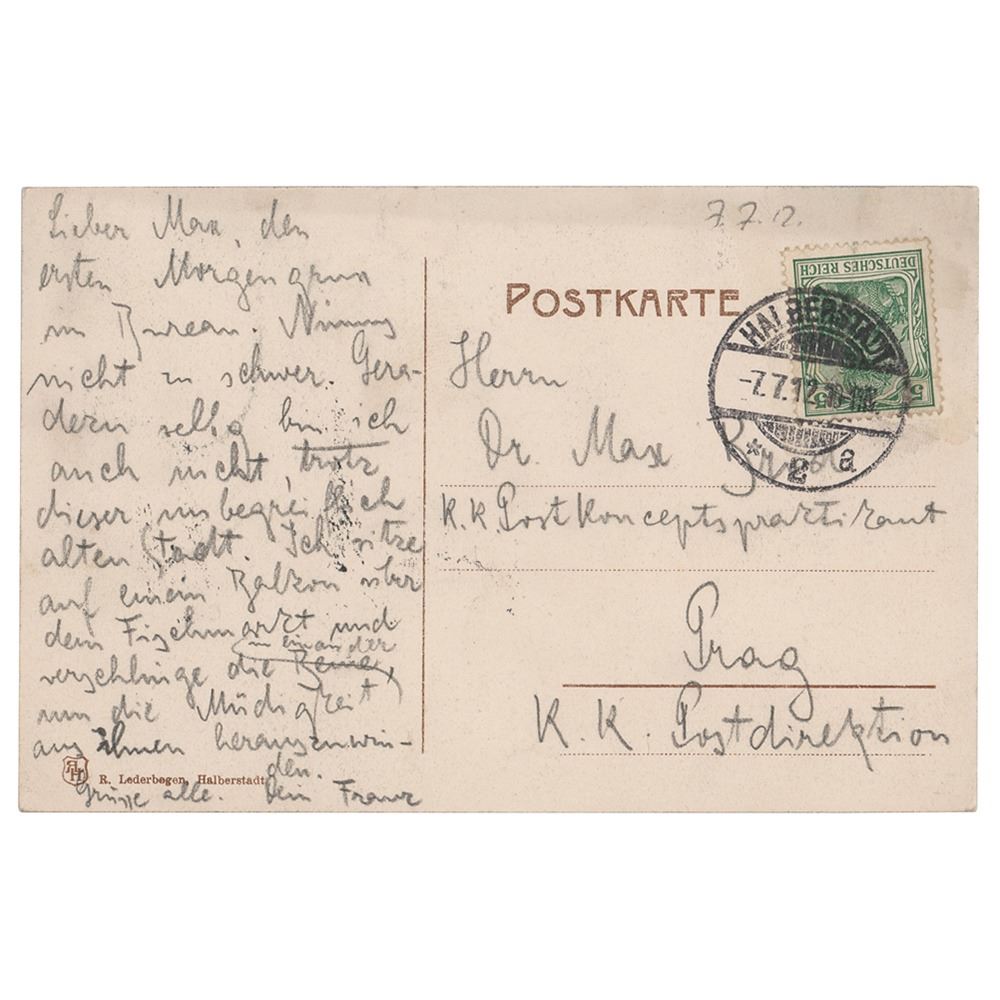 Lieber Max, den
ersten Morgengruss
im Bureau. Nimms
nicht zu schwer. Gera-
dem selig bin ich
auch nicht, trotz
dieser unbegreiflich
alten Stadt. Ich sitze
auf einem Balkon über
dem Fischmarkt und
in einander
verschlinge die Beine,
um die Müdigkeit
aus ihnen herauszuwin-
den.
Grüsse alle. Dein Franz
R. Lederbogen, Halberstadt
7.7.12.
POSTKARTE
DEUTSCHES REICH
5 5
HALBERSTADT
-7.7.12.
* 2 a
Herrn
Dr. Max Brod
K.K Postkonceptspraktikant
Prag
K. K. Postdirektion